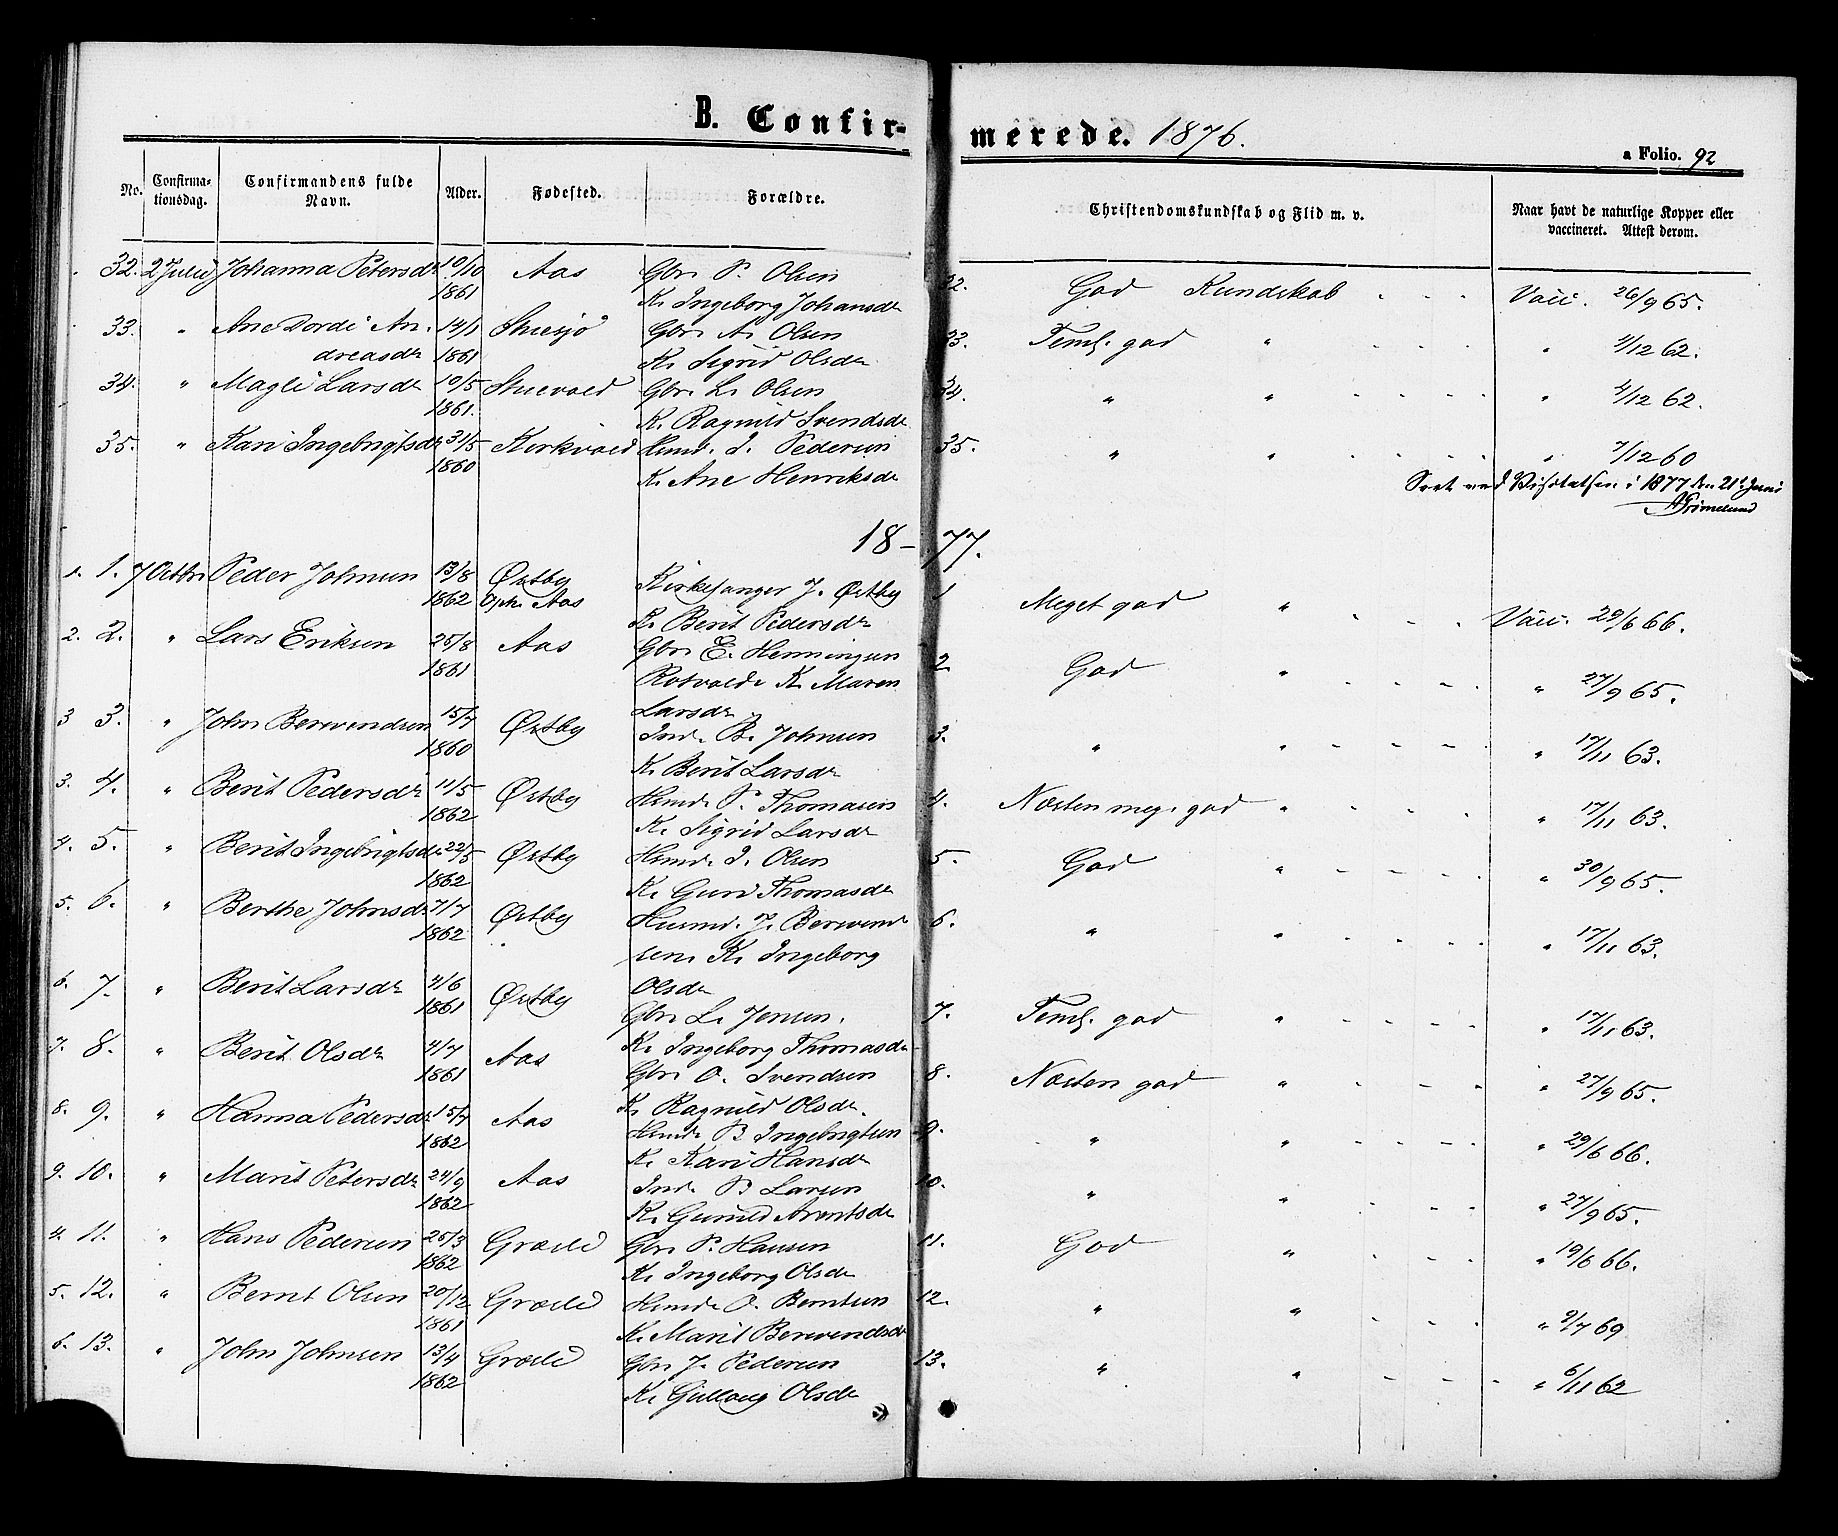 B. Confir-
merede. 1876.
a Folio. 92
No.
Confirma-
tionsdag.
Confirmandens fulde
Navn.
Alder.
Fødested.
Forældre.
Christendomskundskab og Flid m. v.
Naar havt de naturlige Kopper eller
vaccineret. Attest derom.
32. 2 Julij Johanna Petersdr 10/10 Aas Gbr. P. Olsen 22. God Kundskab - - - Vacc. 26/9 65.
1861 K. Ingeborg Johansdr
33. " Ane Dordi An- 14/1 Stuesjö Gbr. A. Olsen 33. Teml. god " - - - - " 4/12 62.
dreasdr 1861 K. Sigrid Olsdr
34. " Magli Larsdr 10/5 Stuevold Gbr. L. Olsen 34. " " - - - - " 4/12 62.
1861. K. Ragnild Svendsdr
35. " Kari Ingebrigtsdr 31/5 Kirkvold Husmd. I. Pedersen 35. " " - - - - " 7/12 60
1860 K. Ane Henriksdr
Seet ved Visitatsen i 1877 den 21de Juni
Grimelund
18-77.
1. 1. 7 Octbr Peder Johnsen 13/8 Østby Kirkesanger J. Østby 1 Meget god " - - - Vacc. 29/6 66.
1862 Oph. Aas K. Berit Pedersdr
2. 2. " Lars Eriksen 25/8 Aas Gbr. E. Henningsen 2. God " - - - - " 27/9 65.
1861 Rotvold. K. Maren
Larsdr
3 3. " John Berevendsen 15/7 Østby Ind. B. Johnsen 3. " " - - - - " 17/11 63.
1860 K. Berit Larsdr
3. 4. " Berit Pedersdr 11/5 Østby Husmd. P. Thomasen 4. Næsten meg. god " - - - " 17/11 63.
1862 K. Sigrid Larsdr
4. 5. " Berit Ingebrigtsdr 22/5 Østby Husmd. I. Olsen 5. God " - - - - " 30/9 65.
1862 K. Guri Thomasdr
5. 6. " Berthe Johnsdr 7/7 Østby Husmd. J. Berevend- 6. " " - - - - " 17/11 63.
1862 sen. K. Ingeborg
Olsdr
6. 7. " Berit Larsdr 4/6 Østby Gbr. L. Jensen. 7. Teml. god " - - - - " 17/11 63.
1861 K. Ingeborg Thomasdr
7. 8. " Berit Olsdr 4/7 Aas Gbr. O. Svendsen 8. Næsten god " - - - - " 27/9 65.
1861 K. Ragnild Olsdr.
8. 9. " Hanna Pedersdr 15/7 Aas Husmd. P. Ingebrigtsen 9. " " - - - - " 29/6 66.
1862 K. Kari Hansdr
9. 10. " Marit Petersdr 24/9 Aas Ind. P. Larsen 10. " " - - - - " 27/9 65.
1862 K. Gunild Arentsdr
4. 11. " Hans Pedersen 25/3 Græsli Gbr. P. Hansen 11. God " - - - - " 19/6 66.
1862 K. Ingeborg Olsdr
5. 12. " Bernt Olsen 20/12 Græsli Husmd. O. Berntsen 12. " " - - - - " 2/7 69
1861 K. Marit Berevendsdr
6. 13. " John Johnsen 13/4 Græsli Gbr. J. Pedersen 13. " " - - - - " 6/11 62
1862 K. Gullaug Olsdr